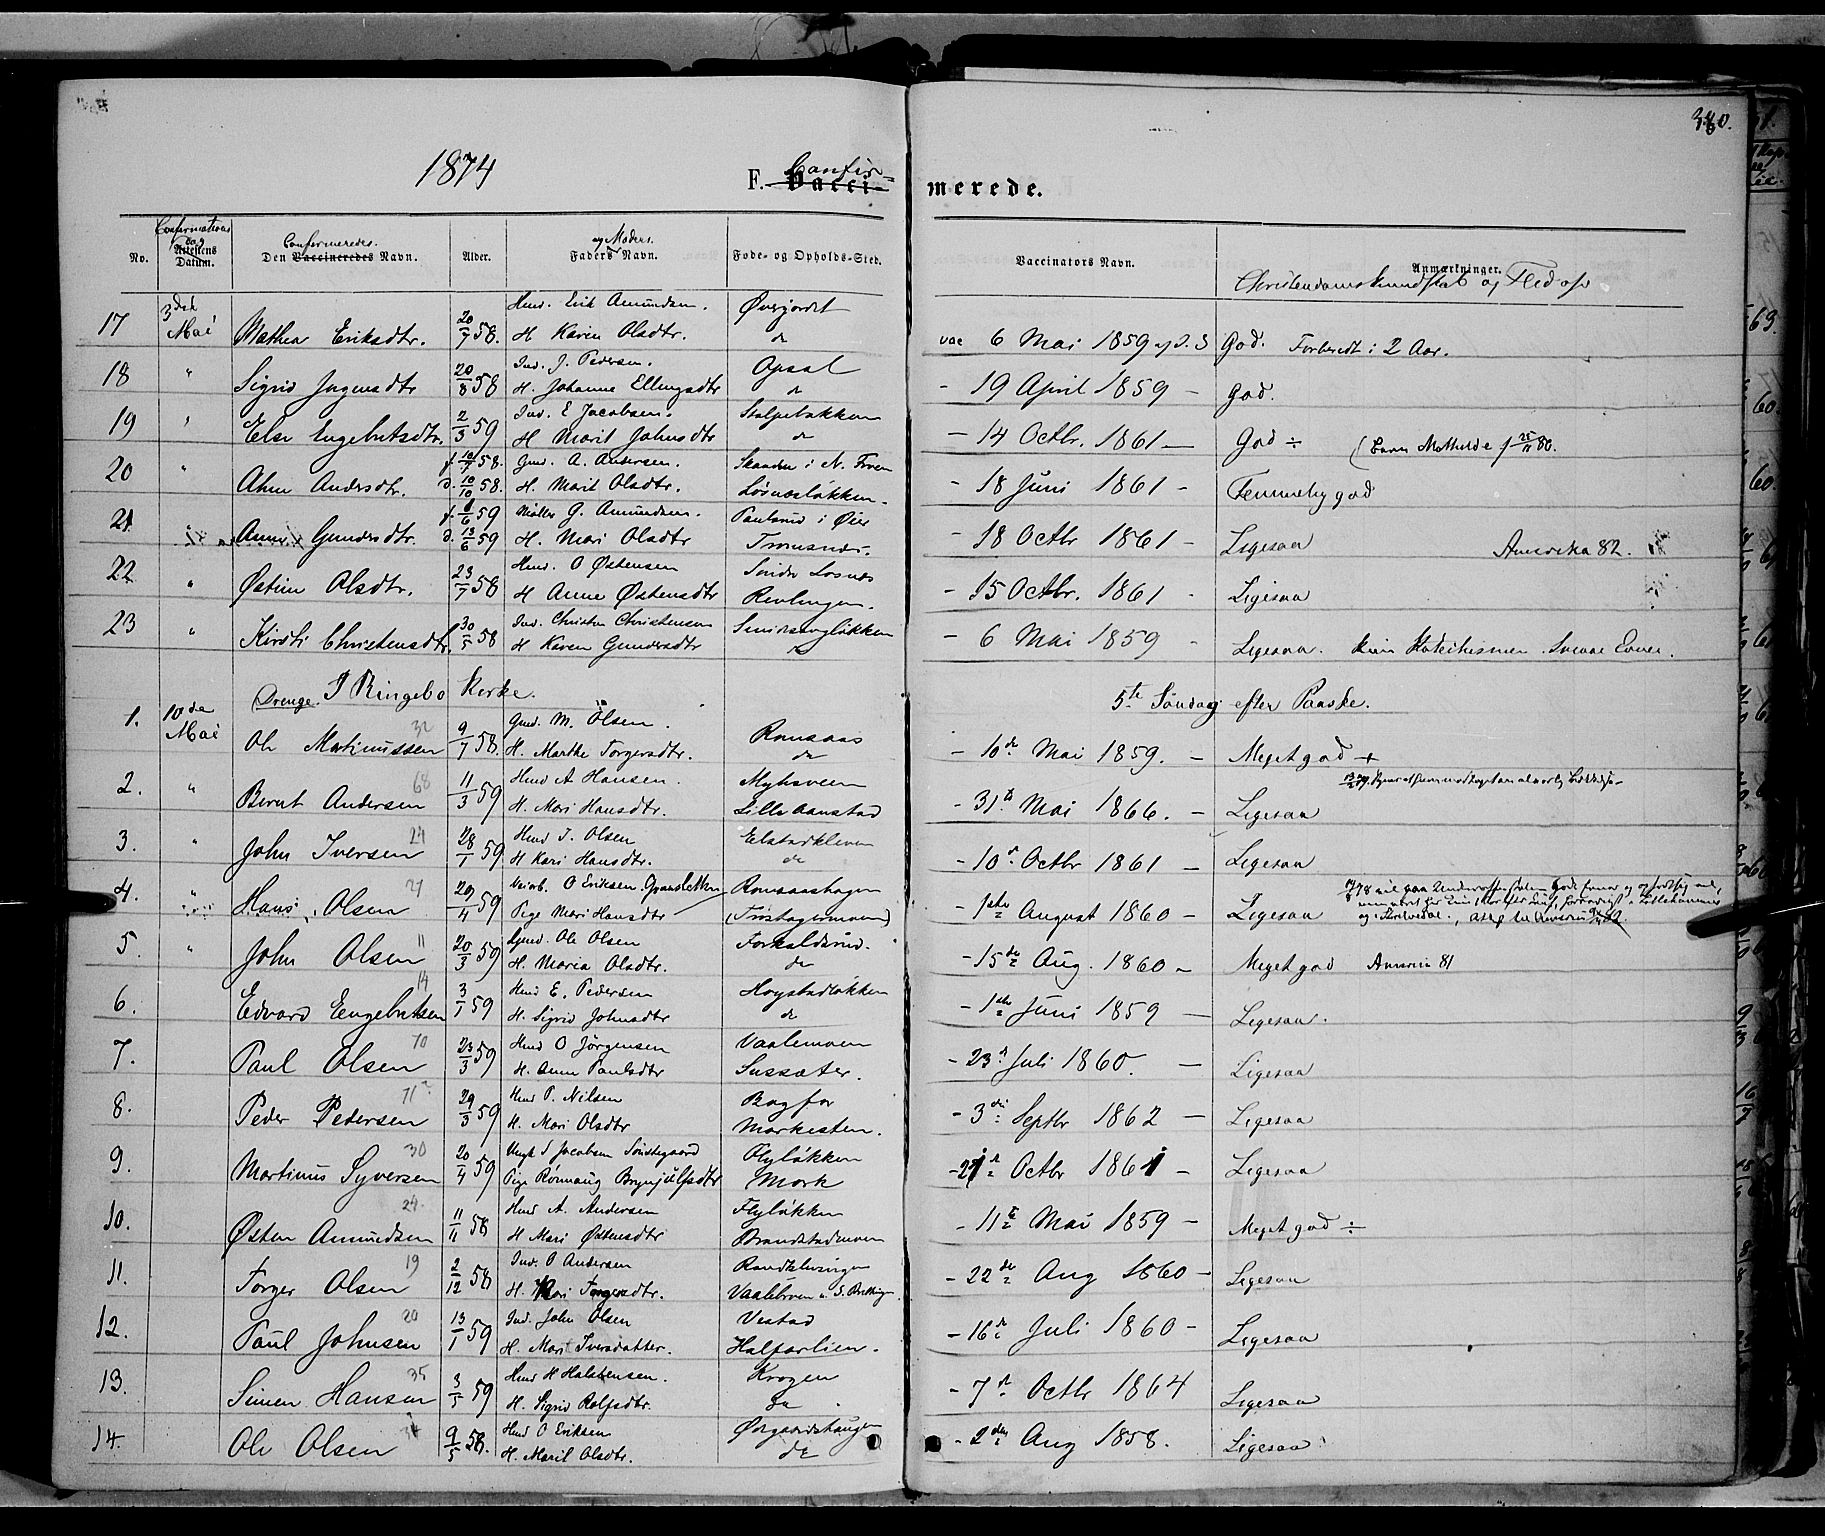 380.
1874
F. Vacci- Confir-
merede.
No.
Confirmations dag
Attestens Datum.
Confirmeredes
Den Vaccineredes Navn.
Alder.
og Moders
Faders Navn.
Føde- og Opholds-Sted.
Vaccinators Navn.
Anmærkninger.
Christendomskundskab og Flid osv
17 3die Mai Mathea Eriksdtr. 20/7 58. Huusm. Erik Amundsen. H Karen Olsdtr. Øverjordet do vac 6 Mai 1859 God. Forberedt i 2 Aar.
18 " Sigrid Ingensdtr 20/8 58 Ind. J. Pedersen. H. Johanne Ellingsdtr Opsal do - 19 April 1859 - God.
19 " Else Engebretsdtr. 2/3 59 Ind. E Jacobsen. H Marit Johnsdtr Stolpebakken do - 14 Octbr. 1861 - God ÷ (Barn Mathilde f 25/11 80.
20 " Ahne Andersdtr. f. 10/9 58. d. 10/10 58. Gmd. A. Andersen. H. Marit Olsdtr. Skaaden i N. Fron Losnæsløkken - 18 Juni 1861 - Temmelig god
21 Anne Gundersdtr. f. 1/6 59 d. 13/6 59 Møller G. Amundsen. H. Mari Olsdtr i Øier Tromsnæs. - 18 Octbr 1861 - Ligesaa Amerika 82.
22 " Østine Olsdtr. 23/7 58 Huusm. O Østensen H Anne Østensdtr Søndre Losnæs Revlingen. - 15 Octbr. 1861 - Ligesaa
23 " Kirsti Christensdtr 30/5 58 Ind. Christen Christensen H Karen Gundersdtr do - 6 Mai 1859 - Ligesaa.
Drenge. I Ringebo Kirke. 5te Søndag efter Paaske.
1. 10de Mai Ole Martinussen 32 9/7 58. Gmd. M. Olsen. H. Marthe Torgersdtr. Romsaas do - 10de Mai 1859. - Meget god +
2. " Bernt Andersen 68 11/3 59 Huusm A Hansen. H. Mari Hansdtr. Myhrveen Lille Aanstad - 31te Mai 1866. - Ligesaa
3. " John Iversen 24 28/1 59 Huusm I. Olsen H Kari Hansdtr. Elstadkleven do - 10de Octbr 1861 - Ligesaa
4. " Hans Olsen 27 29/4 59 O Eriksen Pige Mari Hansdtr Romsaashagen - 1ste August 1860 - Ligesaa
5 " John Olsen 11 20/3 59 Gmd. Ole Olsen H. Maria Olsdtr. do - 15de Aug. 1860 - Meget god Amerika 81
6. Edvard Engebretsen 14 3/1 59 Huusm E. Pedersen H. Sigrid Johnsdtr Høystadløkken do - 1ste Juni 1859 - Ligesaa.
7. Paul Olsen 70 23/3 59 Huusm O Jørgensen H. Anne Paulsdtr Vaalemoen Sussæter. - 23de Juli 1860. - Ligesaa
8. Peder Pedersen 71 29/3 59 Huusm P. Nilsen H. Mari Olsdtr - 3die Septbr 1862 - Ligesaa
9. Martinus Syversen 30 20/4 59 Ungk S Jacobsen Pige Rønnaug Brynjulfsdtr Flyløkken Mork - 21de Octbr 1861 - Ligesaa
10. Østen Amundsen 24. 11/11 58 Huusm A. Andersen H Mari Østensdtr Flyløkken Brandstadmoen - 11te Mai 1859 - Meget god ÷
11. Torger Olsen 19 2/12 58 Ind. O Andersen H. Mari Torgersdtr. Randklevingen - 22de Aug 1860 - Ligesaa
12. Paul Johnsen 20 13/1 59 Ind. John Olsen H. Mari Iversdatter. Vestad Halfarlien. - 16de Juli 1860 - Ligesaa
13. Simen Hansen 35 3/5 59 Huusm H Halstensen. H. Sigrid Rolfsdtr. Krogen do - 7de Octbr 1864 Ligesaa
14. Ole Olsen 9/5 58. Huusm O Eriksen H. Marit Olsdtr. Ørgaardshaugen do - 2den Aug 1858. - Ligesaa